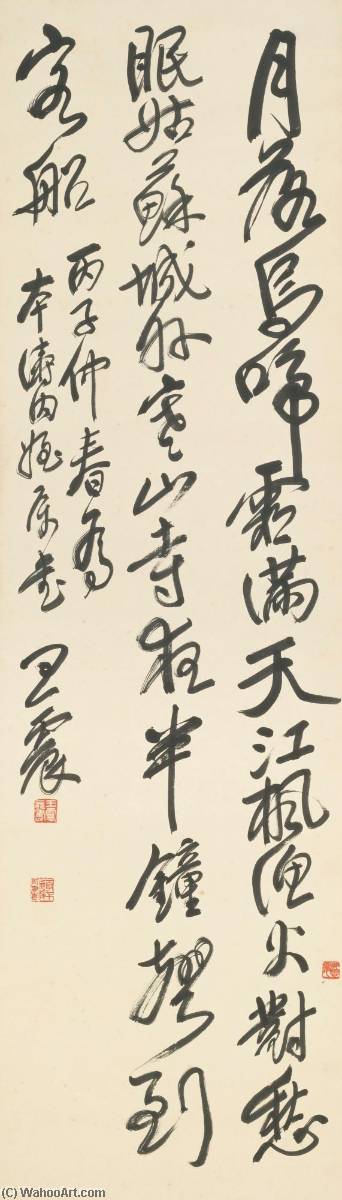 月落烏啼霜滿天江楓漁火對愁
眠姑蘇城外寒山寺夜半鐘聲到
客船
丙子仲春為
本濤內姪屬書
王震
(C) WahooArt.com